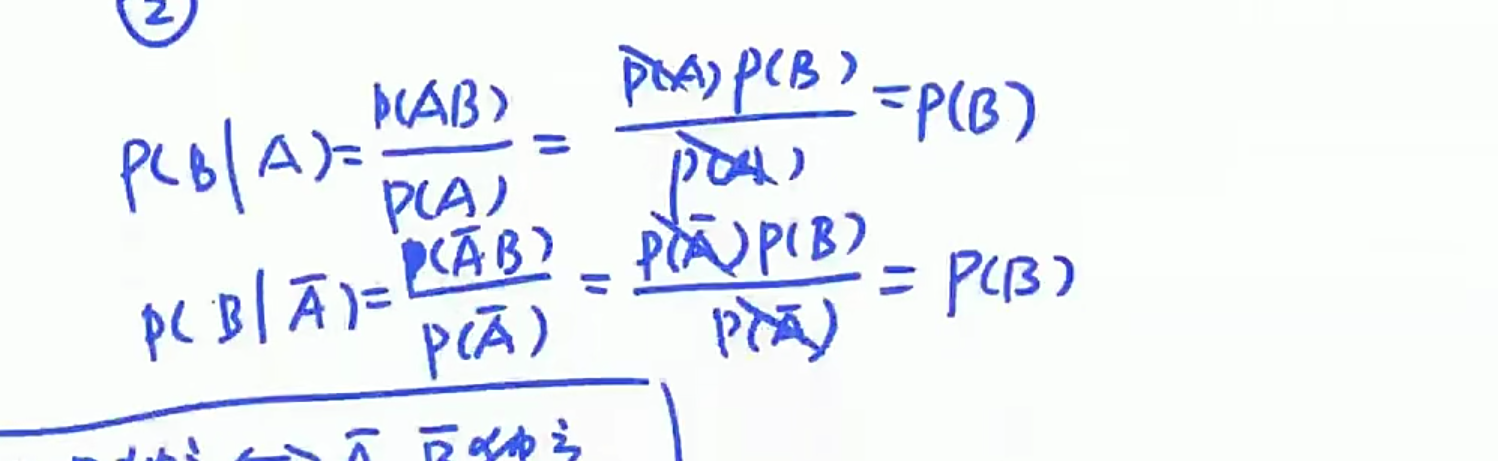 ②
P(B|A)=P(AB)/P(A)=P(A)P(B)/P(A)=P(B)
P(B|Ā)=P(ĀB)/P(Ā)=P(Ā)P(B)/P(Ā)=P(B)
⟺ Ā B̄